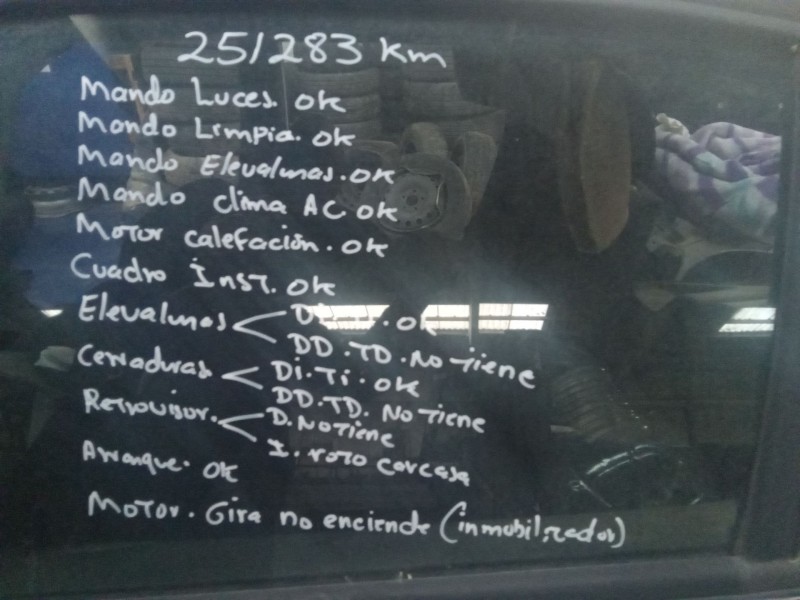 251283 Km
Mando Luces. ok
Mando Limpia. ok
Mando Elevalunas. ok
Mando clima AC ok
Motor calefación. ok
Cuadro Inst. ok
Elevalunas < ok
DD. TD. No tiene
Cerraduras < DI. TI. ok
DD. TD. No tiene
Retrovisor. < D. No tiene
I. roto carcasa
Arranque. ok
Motor. Gira no enciende (inmobilizador)